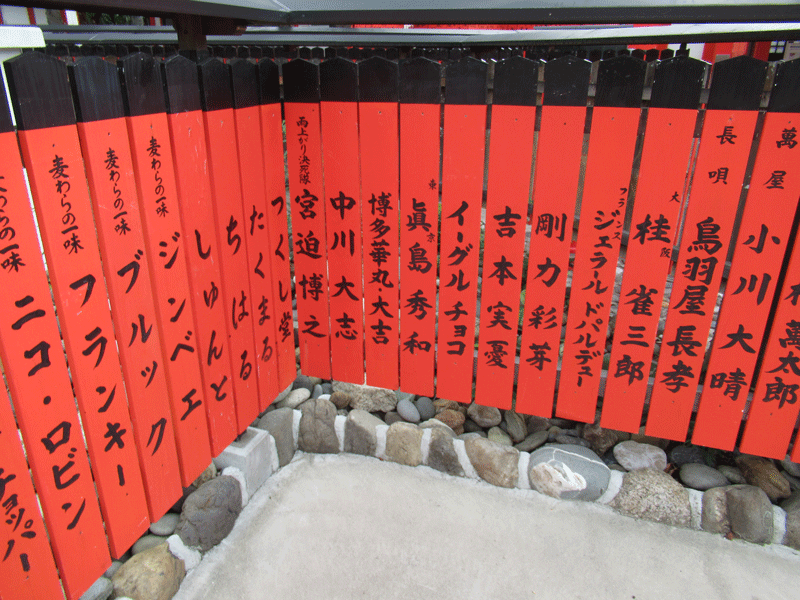 チョッパー
麦わらの一味 ニコ・ロビン
麦わらの一味 フランキー
麦わらの一味 ブルック
麦わらの一味 ジンベエ
しゅんと
ちはる
たくまる
つくし堂
雨上がり決死隊 宮迫博之
中川大志
博多華丸・大吉
東京 眞島秀和
イーグルチョコ
吉本実憂
剛力彩芽
フランス ジェラールドパルデュー
大阪 桂雀三郎
長唄 鳥羽屋長孝
萬屋 小川大晴
萬太郎